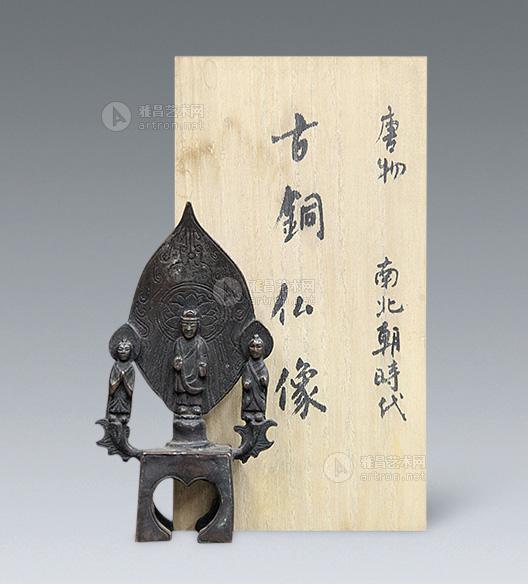 唐物 南北朝時代
古銅仏像
雅昌艺术网
artron.net
雅昌艺术网
artron.net
雅昌艺术网
artron.net